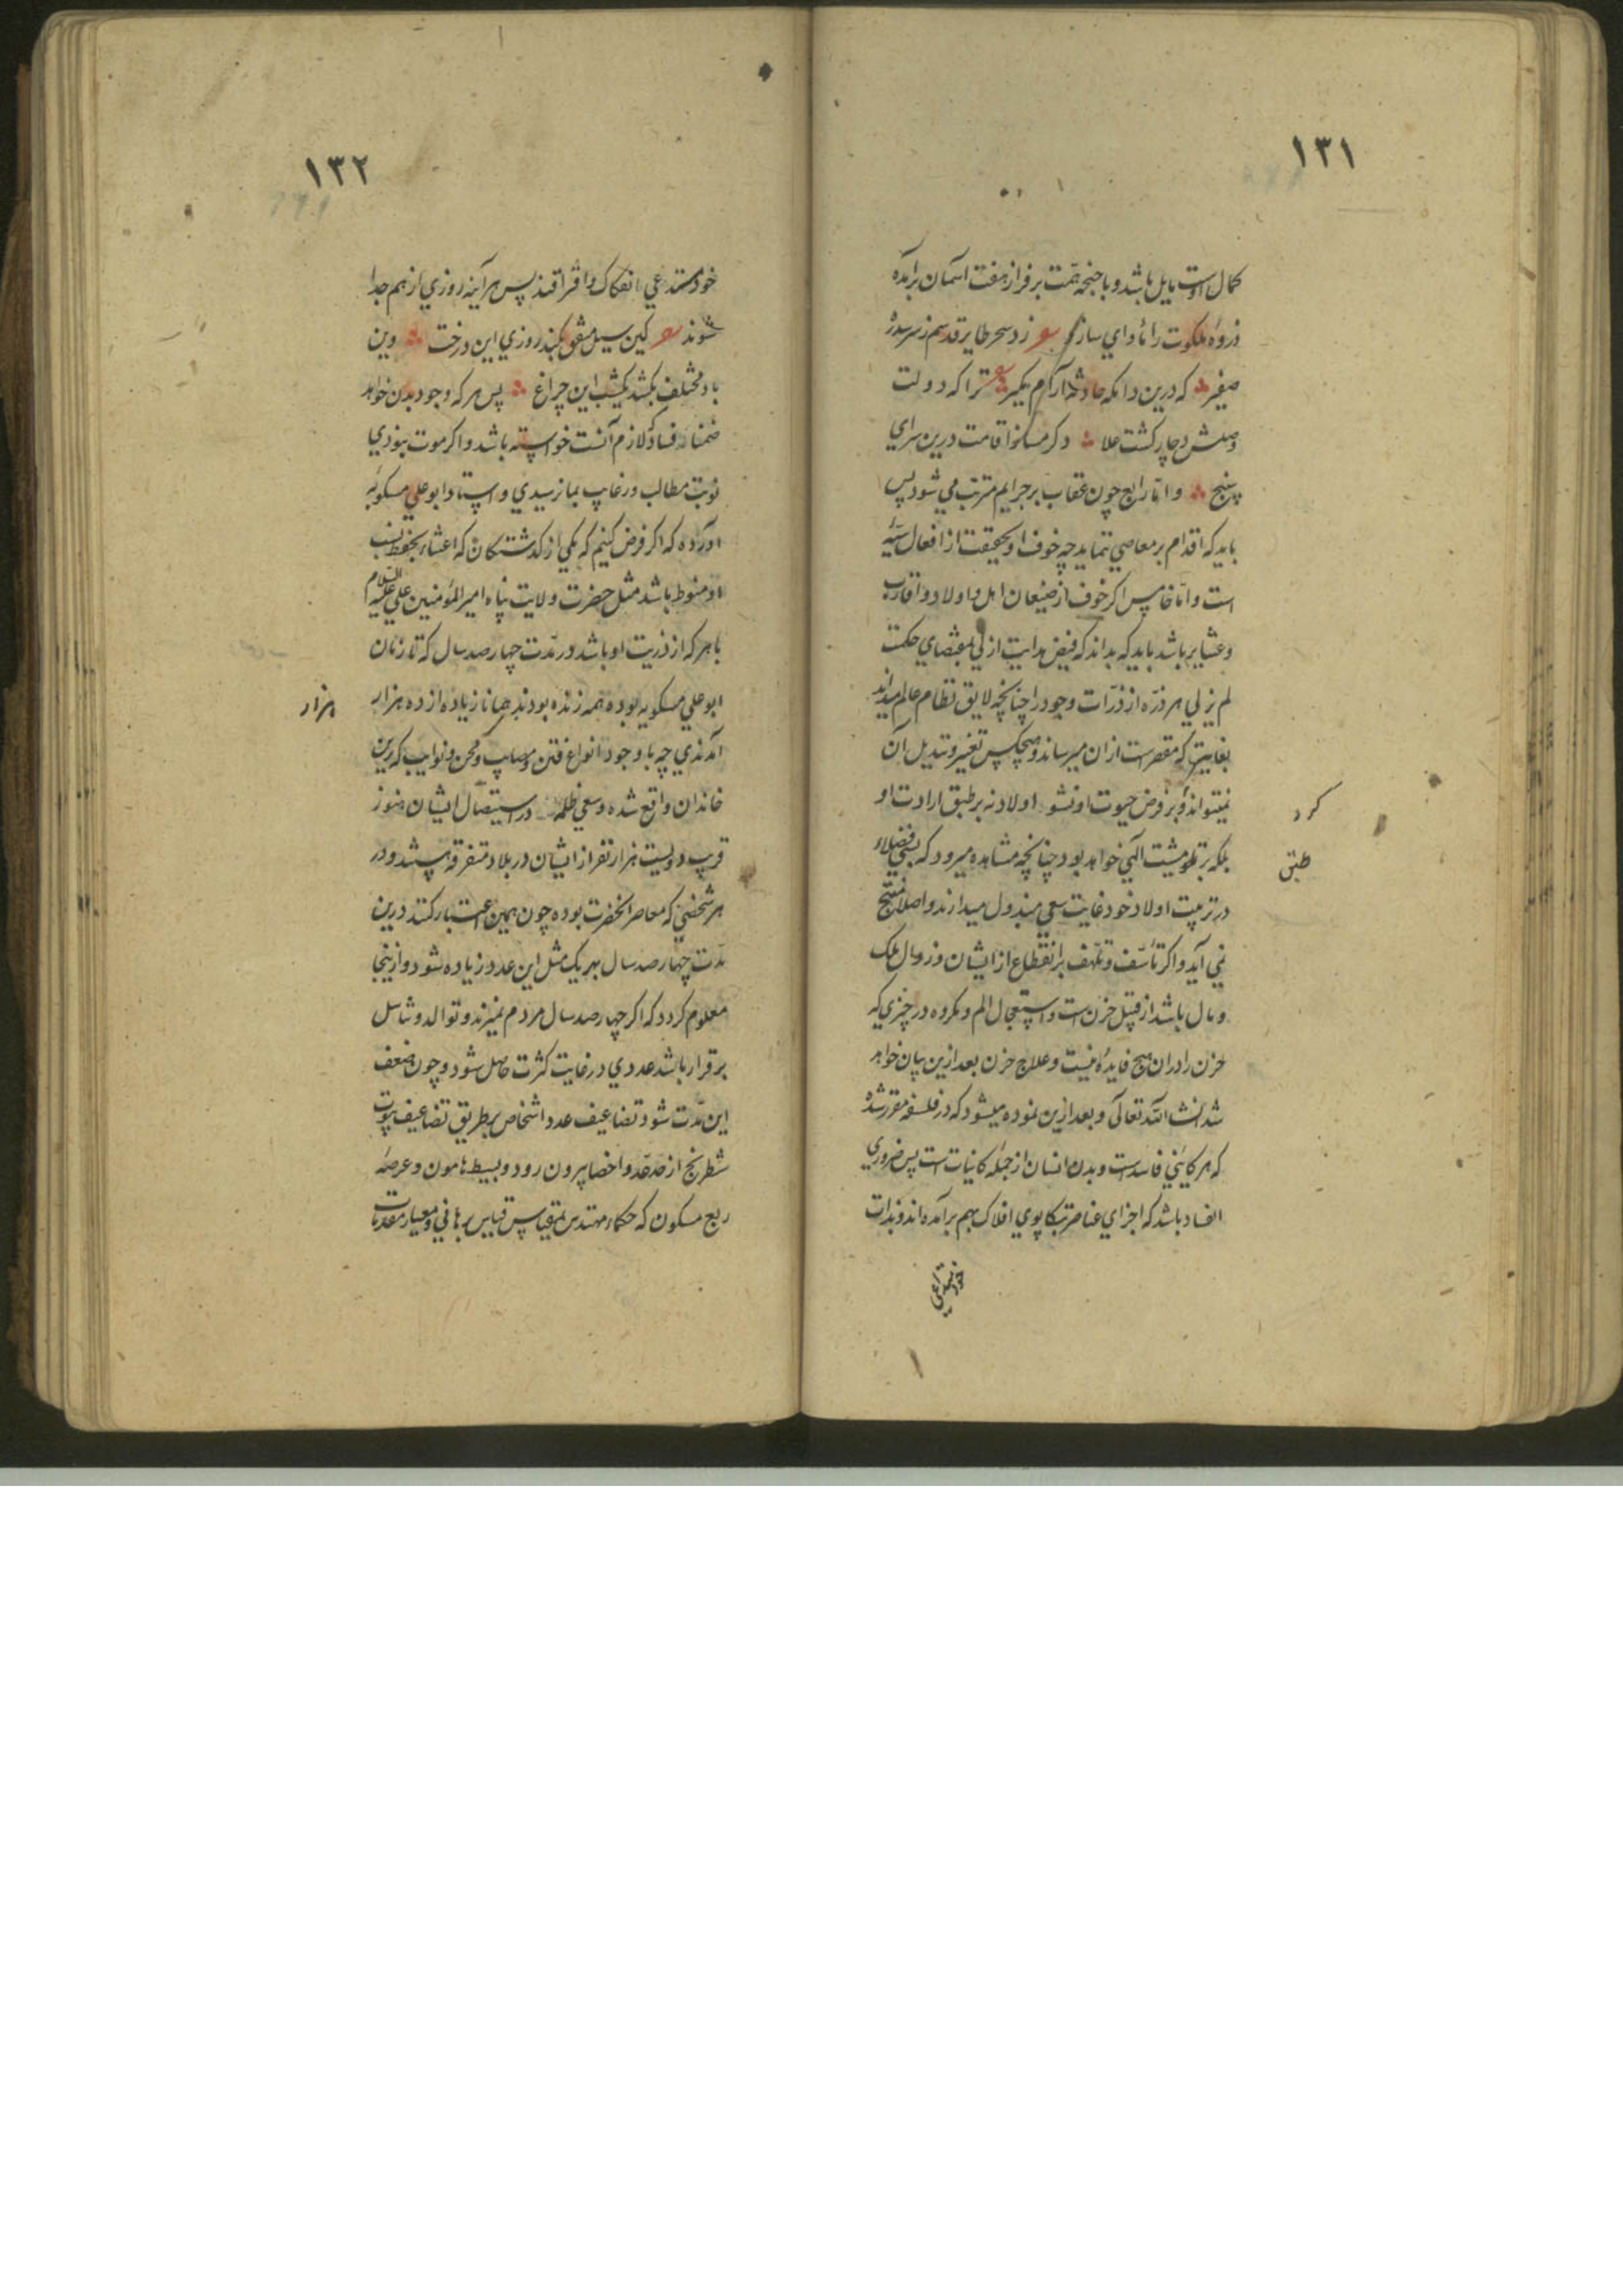 ۱۳۱
کمال اوست مایل باشد و باجنحه همّت بر فراز هفت آسمان برآمده
ذروه ملکوت را ماوای سازد زد سحر طایر قدسم ز سر سدره
صفیر که درین دامکه حادثه آرام مکیر ترا که دولت
وصلش دچار کشت علا دکر مخواه اقامت درین سرای
سپنج و امّا رابع چون عقاب بر جرایم مترتب می شود پس
باید که اقدام بر معاصی ننماید چه خوف او بحقیقت از افعال سیّئه
است و امّا خامس اکر خوف از ضیعان اهل و اولاد و اقارب
و عشایر باشد باید که بداند که فیض هدایت ازلی بمقتضای حکمت
لم یزلی هر ذرّه از ذرّات وجود را چنانچه لایق نظام عالم میداند
بغایتی که مقصر است ازان میرساند و هیچکس تغییر و تبدیل آن
نمیتواند و بر فرض حیوت او نشو اولاد نه بر طبق ارادت او
کرد
بلکه بر مشیت الهی خواهد بود چنانچه مشاهده میرود که بسی فضلاء
طبق
در تربیت اولاد خود غایت سعی مبذول میدارند و اصلا منتج
نمی آید و اکر تأسّف و تلهّف بر انقطاع از ایشان و زوال ملک
و مال باشد از قبیل حزن است و استعجال الم و مکروه در چیزی که
حزن را دران هیچ فایده نیست و علاج حزن بعد ازین بیان خواهد
شد انشا الله تعالی و بعد ازین نموده میشود که در فلسفه مقرر شده
که هر کاینی فاسد است و بدن انسان از جمله کاینات است پس ضروری
الفساد باشد که اجزای عناصر بتکاپوی افلاک بهم برآمده اند و بذات
خود مستدعی
۱۳۲
خود مستدعی انفکاک و افتراقند پس هر آینه روزی از هم جدا
شوند کین سیل متفق بکند روزی این درخت وین
باد مختلف بکشد یکشب این چراغ پس هر که وجود بدن خواهد
ضمنا فساد که لازم آنست خواسته باشد و اکر موت نبودی
نوبت مطالب و رغایب بما نرسیدی و استاد ابو علی مسکویه
آورده که اکر فرض کنیم که یکی از کذشتکان که اعتناء بحفظ نسب
او منوط باشد مثل حضرت ولایت پناه امیر المؤمنین علی علیه السلام
با هر که از ذریت او باشد در مدّت چهار صد سال که تا زمان
ابو علی مسکویه بوده همه زنده بودند همانا زیاده از ده هزار
هزار
آمدندی چه با وجود انواع فتن و مصایب و محن و نوایب که برین
خاندان واقع شده و سعی ظلمه در استیصال ایشان هنوز
قریب دویست هزار نفر از ایشان در بلاد متفرقه هستند و در
هر شخصی که معاصر آنحضرت بوده چون همین اعتبار کنند درین
مدّت چهار صد سال بهر یک مثل این عدد زیاده شود و ازینجا
معلوم کردد که اکر چهار صد سال مردم نمیرند و توالد و تناسل
بر قرار باشد عددی در غایت کثرت حاصل شود و چون ضعف
این مدّت شود تضاعیف عدد اشخاص بر طریق تضاعیف بیوت
شطرنج از حد عدّ و احصا بیرون رود و بسیط هامون و عرصه
ربع مسکون که حکماء مهندس بمقیاس قیاس برهانی و معیار مقدمات